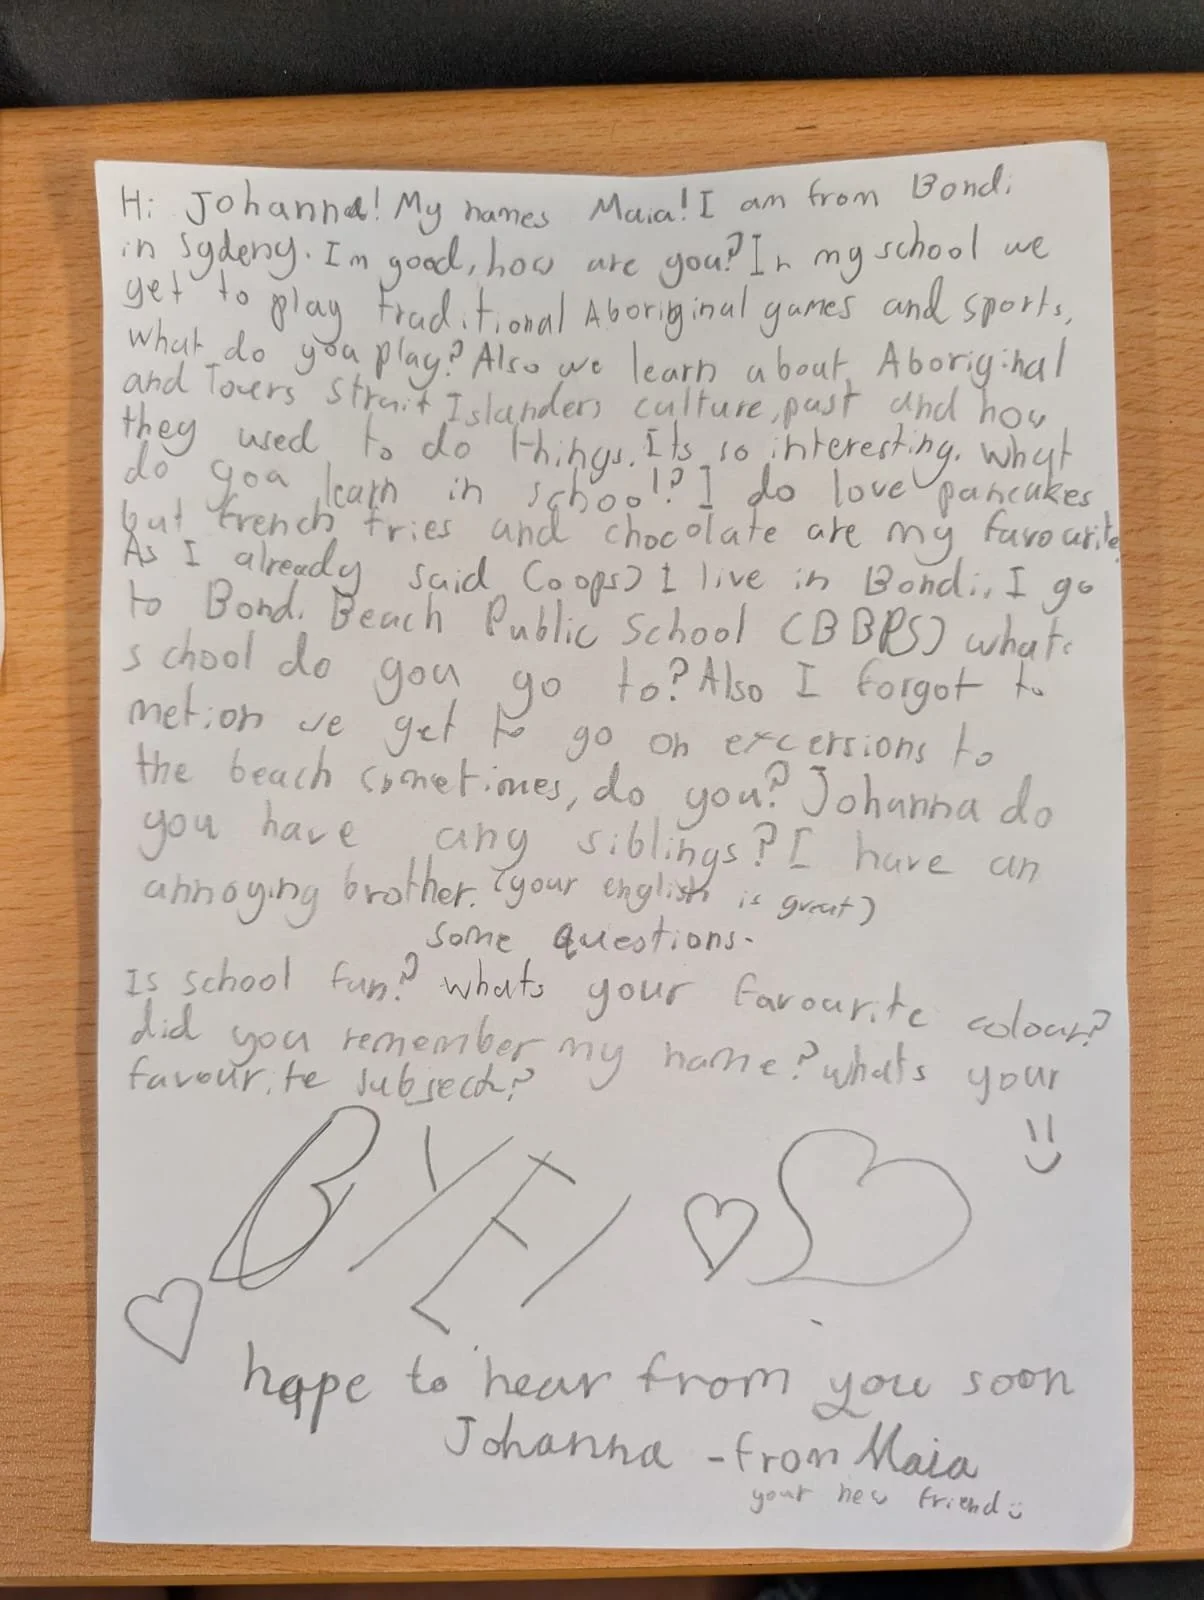 Hi Johanna! My names Maia! I am from Bondi
in Sydeny. Im good, how are you? In my school we
get to play traditional Aboriginal games and sports,
what do you play? Also we learn about Aboriginal
and Tours Strait Islanders culture, past and how
they used to do things. Its so interesting. What
do you learn in school!? I do love pancakes
but french fries and chocolate are my favourite
As I already said (oops) I live in Bondi, I go
to Bondi Beach Public School (BBPS) what
school do you go to? Also I forgot to
metion we get to go on excersions to
the beach sometimes, do you? Johanna do
you have any siblings? I have an
annoying brother. (your english is great)
some questions-
Is school fun? whats your favourite colour?
did you remember my name? whats your
favourite subject?
BYE!
hope to hear from you soon
Johanna -from Maia
your new friend